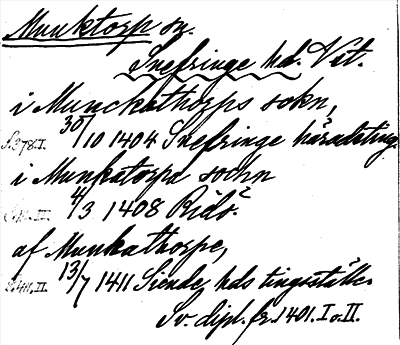 Munktorp sn.
Snefringe hd. Vst.
i Munckathorps sokn,
S. 378. I. 30/10 1404 Snefringe häradsting.
i Munkatorpa sochn
4/3 1408 Ridö.
af Munkathorpe,
S. 411. II. 13/7 1411 Siende hds tingsställe.
Sv. dipl. fr. 1401. I o. II.